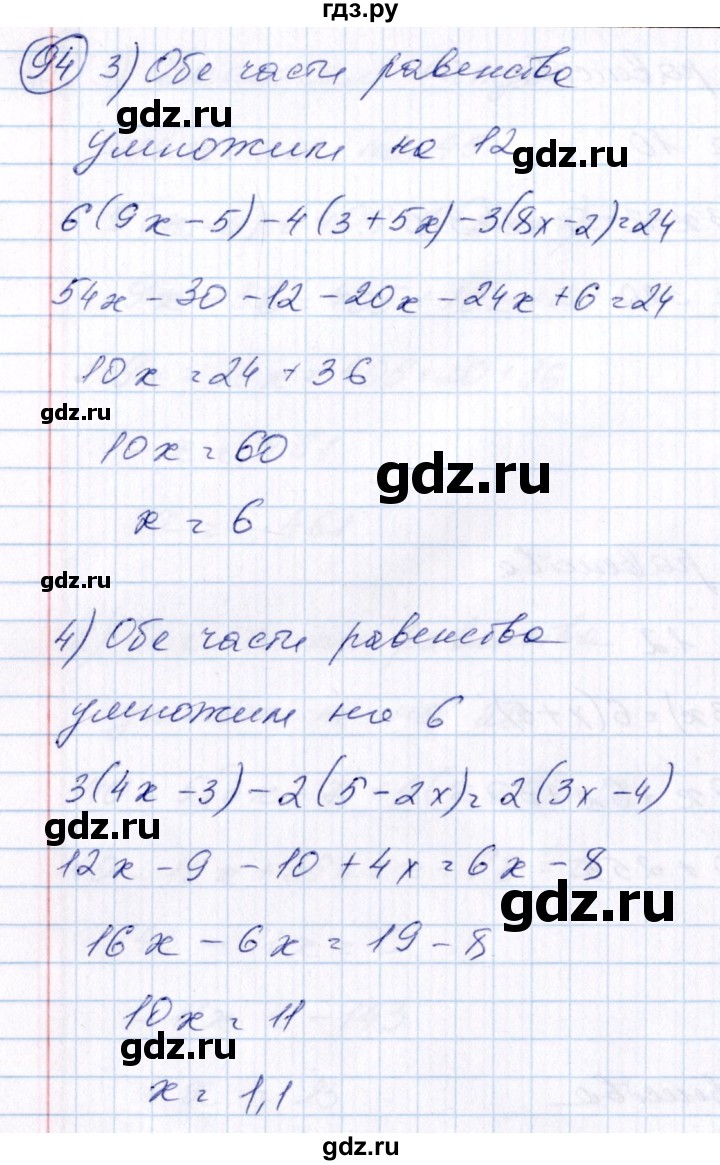 гдз.ру
94 3) Обе части равенства
gdz.ru
умножим на 12
gdz.ru
6(9x-5)-4(3+5x)-3(8x-2)=24
54x-30-12-20x-24x+6=24
10x=24+36
gdz.ru
10x=60
gdz.ru
x=6
gdz.ru
4) Обе части равенства
умножим на 6
3(4x-3)-2(5-2x)=2(3x-4)
gdz.ru
12x-9-10+4x=6x-8
gdz.ru
16x-6x=19-8
10x=11
gdz.ru
x=1,1
gdz.ru